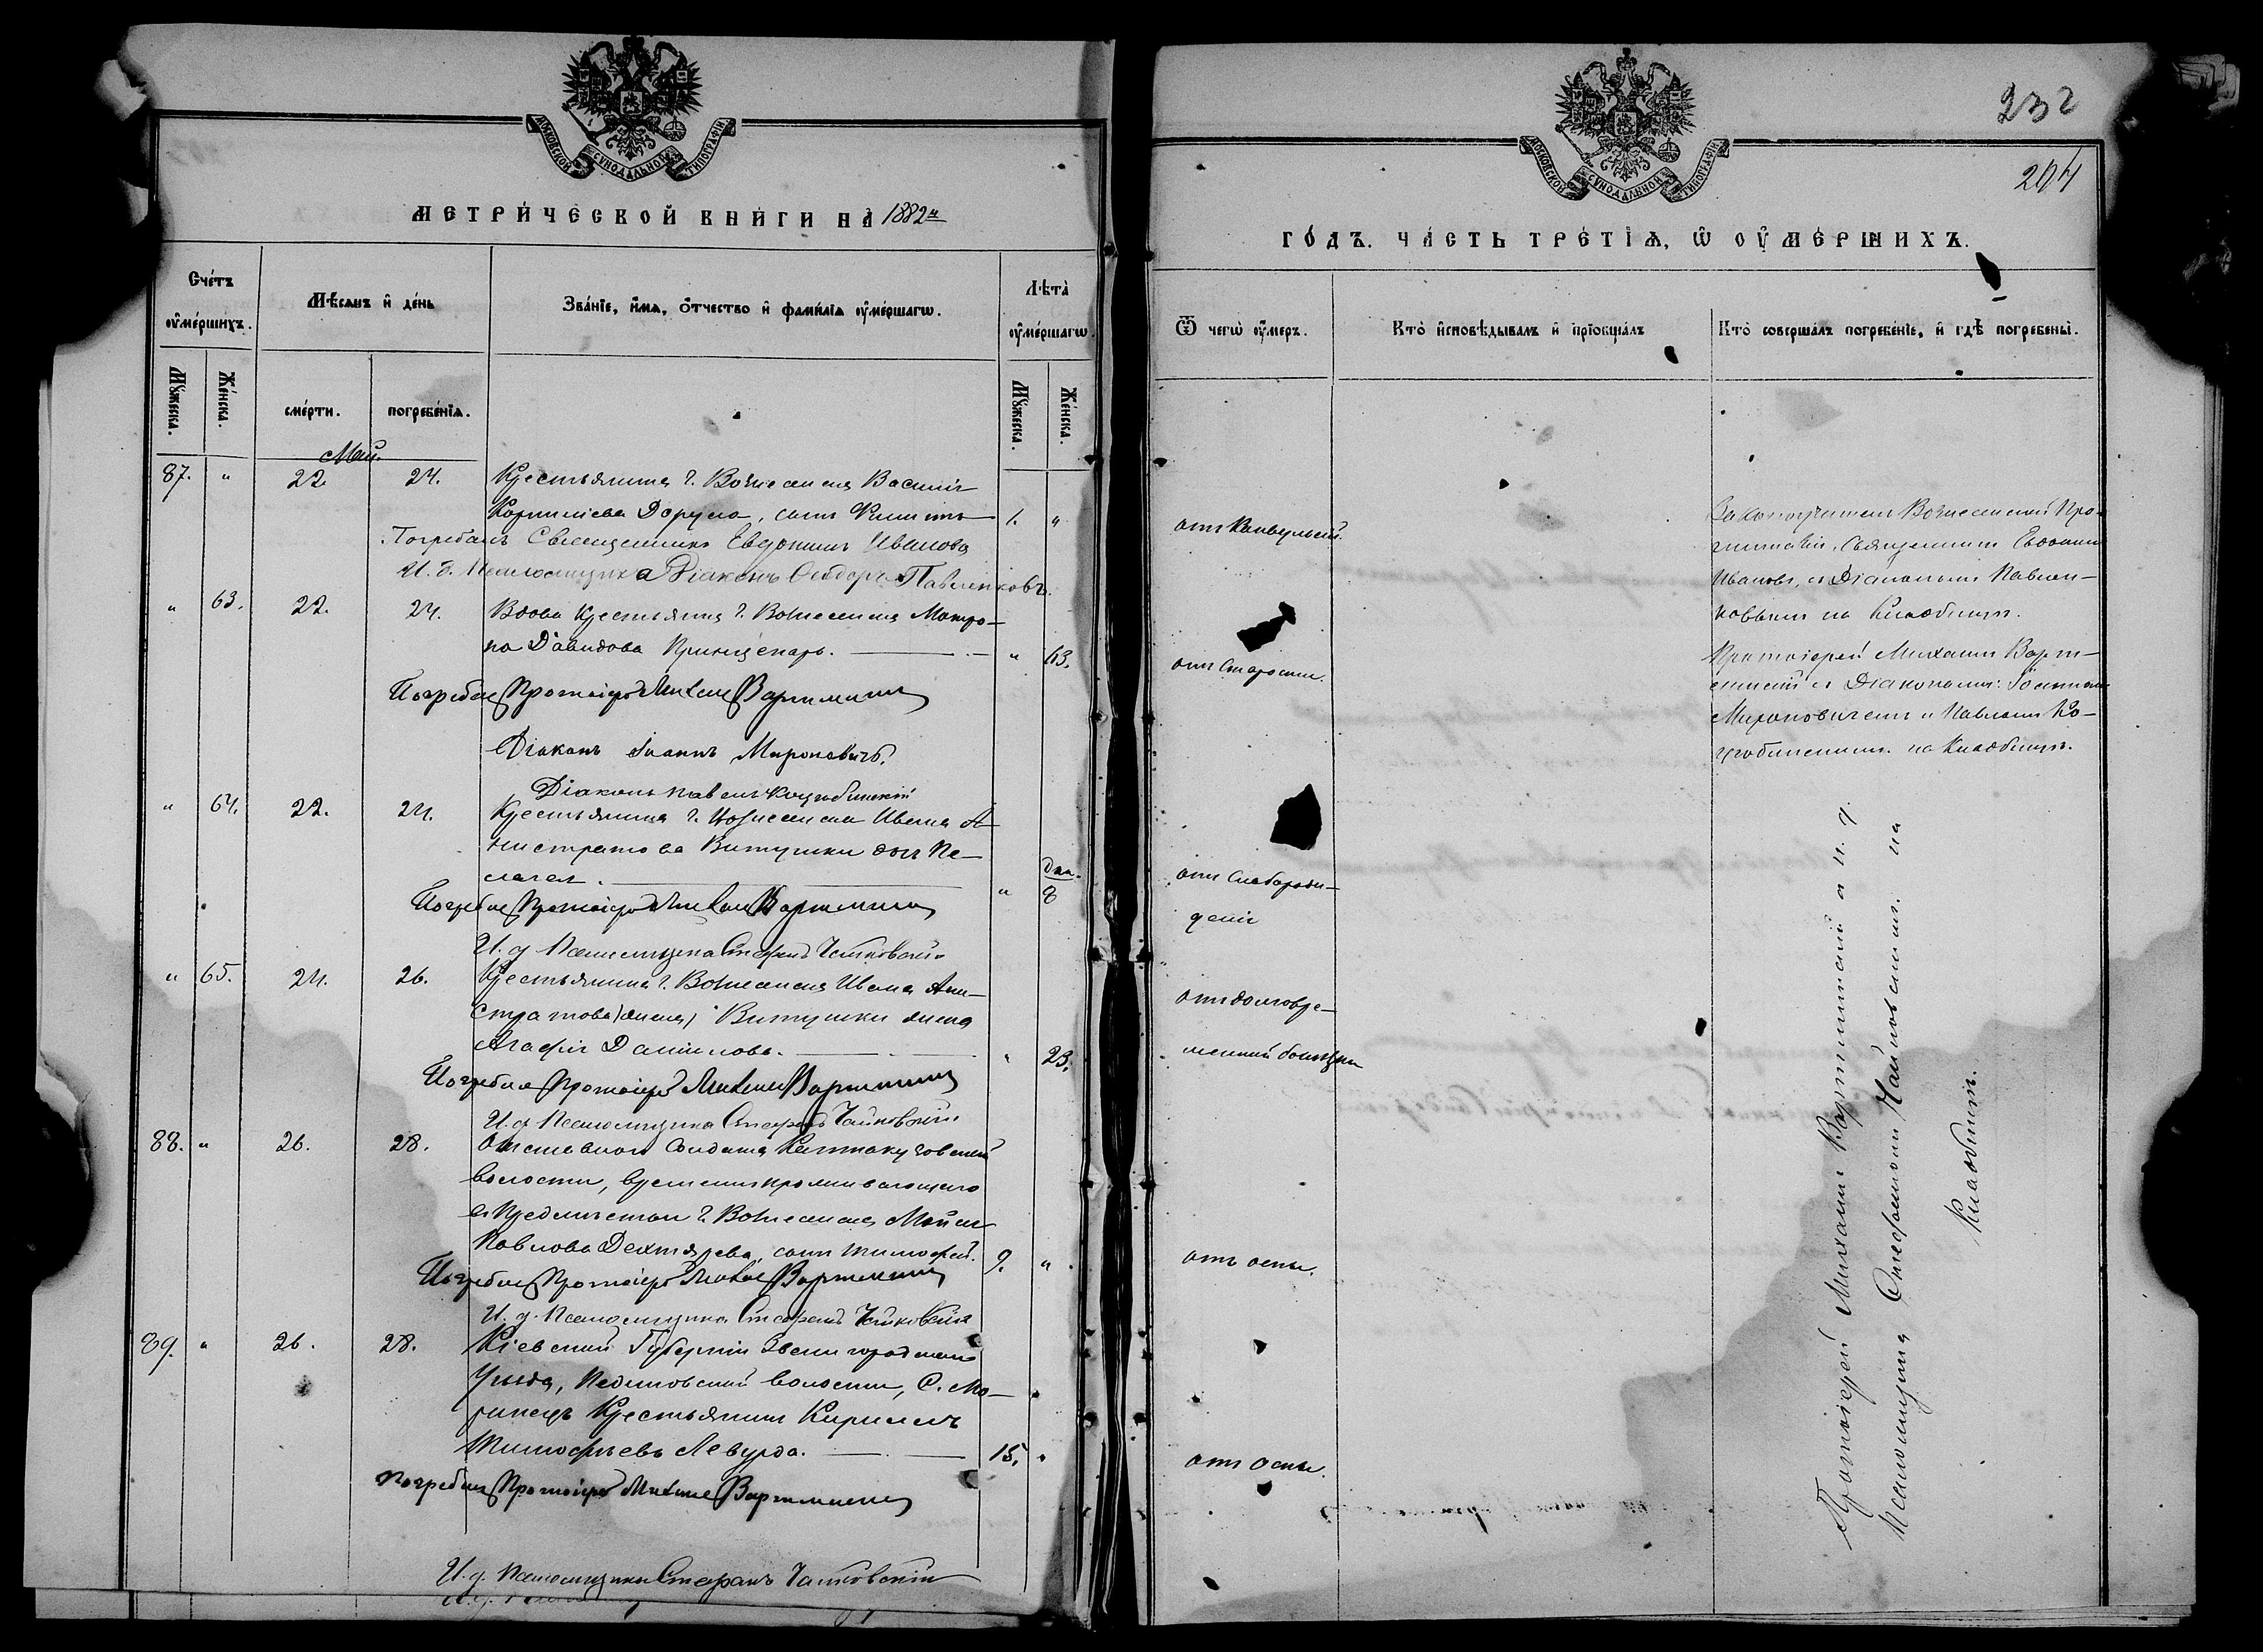 МОСКОВСКОЙ СУНОДАЛЬНОЙ ТИПОГРАФІИ
МЕТРИ́ЧЕСКОЙ КНИ́ГИ НА 1882й
Сче́тъ ᲂу҆ме́ршихъ.
Мѣ́сяцъ и҆ де́нь
Зва́нїе, и҆́мя, ѻ҆́тчество и҆ фами́лїя ᲂу҆ме́ршагѡ.
Лѣ́та ᲂу҆ме́ршагѡ.
Мꙋ́жеска.
Же́нска.
сме́рти.
погребе́нїя.
Мꙋ́жеска.
Же́нска.
Май.
87. " 22. 24. Крестьянина г. Вознесенска Василія
Корнилиева Доруса, сынъ Филиппъ 1. "
Погребалъ Священникъ Евдокимъ Ивановъ
И. д. Псаломщика Діаконъ Ѳеодоръ Павленковъ.
" 63. 22. 24. Вдова Крестьянка г. Вознесенска Матро-
на Давидова Принценарь. " 63.
Погребалъ Протоіерей Михаилъ Вартминскій
Діаконъ Іоаннъ Мироновичъ.
Діаконъ Павелъ Коцюбинскій
" 64. 22. 24. Крестьянина г. Вознесенска Ивана А-
нистратова Витушки дочь Пе-
лагея. " дн. 8
Погребалъ Протоіерей Михаилъ Вартминскій
И. д. Псаломщика Стефанъ Чайковскій
" 65. 24. 26. Крестьянина г. Вознесенска Ивана Ани-
стратова Витушки жена
Агафія Даніилова. " 23.
Погребалъ Протоіерей Михаилъ Вартминскій
И. д. Псаломщика Стефанъ Чайковскій
88. " 26. 28. Отставного Солдата
волости, временно проживающаго
въ Предмѣстьи г. Вознесенска Моисея
Павлова Дехтярева, сынъ Тимофей. 9. "
Погребалъ Протоіерей Михаилъ Вартминскій
И. д. Псаломщика Стефанъ Чайковскій
89. " 26. 28. Кіевской Губерніи Звенигородскаго
Уѣзда, волости, С. Мо-
ринецъ Крестьянинъ Кириллъ
Тимофѣевъ Левурда. 15. "
Погребалъ Протоіерей Михаилъ Вартминскій
И. д. Псаломщика Стефанъ Чайковскій
МОСКОВСКОЙ СУНОДАЛЬНОЙ ТИПОГРАФІИ
232
204
ГО́ДЪ. ЧА́СТЬ ТРЕ́ТЇЯ, Ѡ҆ ОУ҆МЕ́РШИХЪ.
Ѿ чегѡ̀ ᲂу҆́меръ.
Кто̀ и҆сповѣ́дывалъ и҆ прїобща́лъ
Кто̀ соверша́лъ погребе́нїе, и҆ гдѣ̀ погребены̀.
отъ Конвульсій.
Законоучитель Вознесенской Про-
гимназіи, Священникъ Евдокимъ
Ивановъ, съ Діакономъ Павлен-
ковымъ на Кладбищѣ.
отъ Старости.
Протоіерей Михаилъ Варт-
минскій съ Діаконами: Іоанномъ
Мироновичемъ и Павломъ Ко-
цюбинскимъ на Кладбищѣ.
отъ Слаборож-
денія
отъ долговре-
менной болѣзни
отъ оспы.
отъ оспы.
Протоіерей Михаилъ Вартминскій съ и. д.
Псаломщика Стефаномъ Чайковскимъ на
Кладбищѣ.